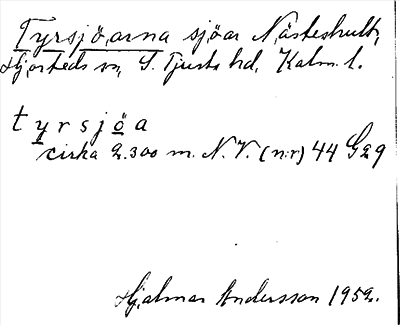 Tyrsjöarna sjöar Nästeshult,
Hjorteds sn, S. Tjusts hd, Kalm. l.
tyrsjöa
cirka 2.300 m. N.V. (n:r) 44 G29
Hjalmar Andersson 1952.